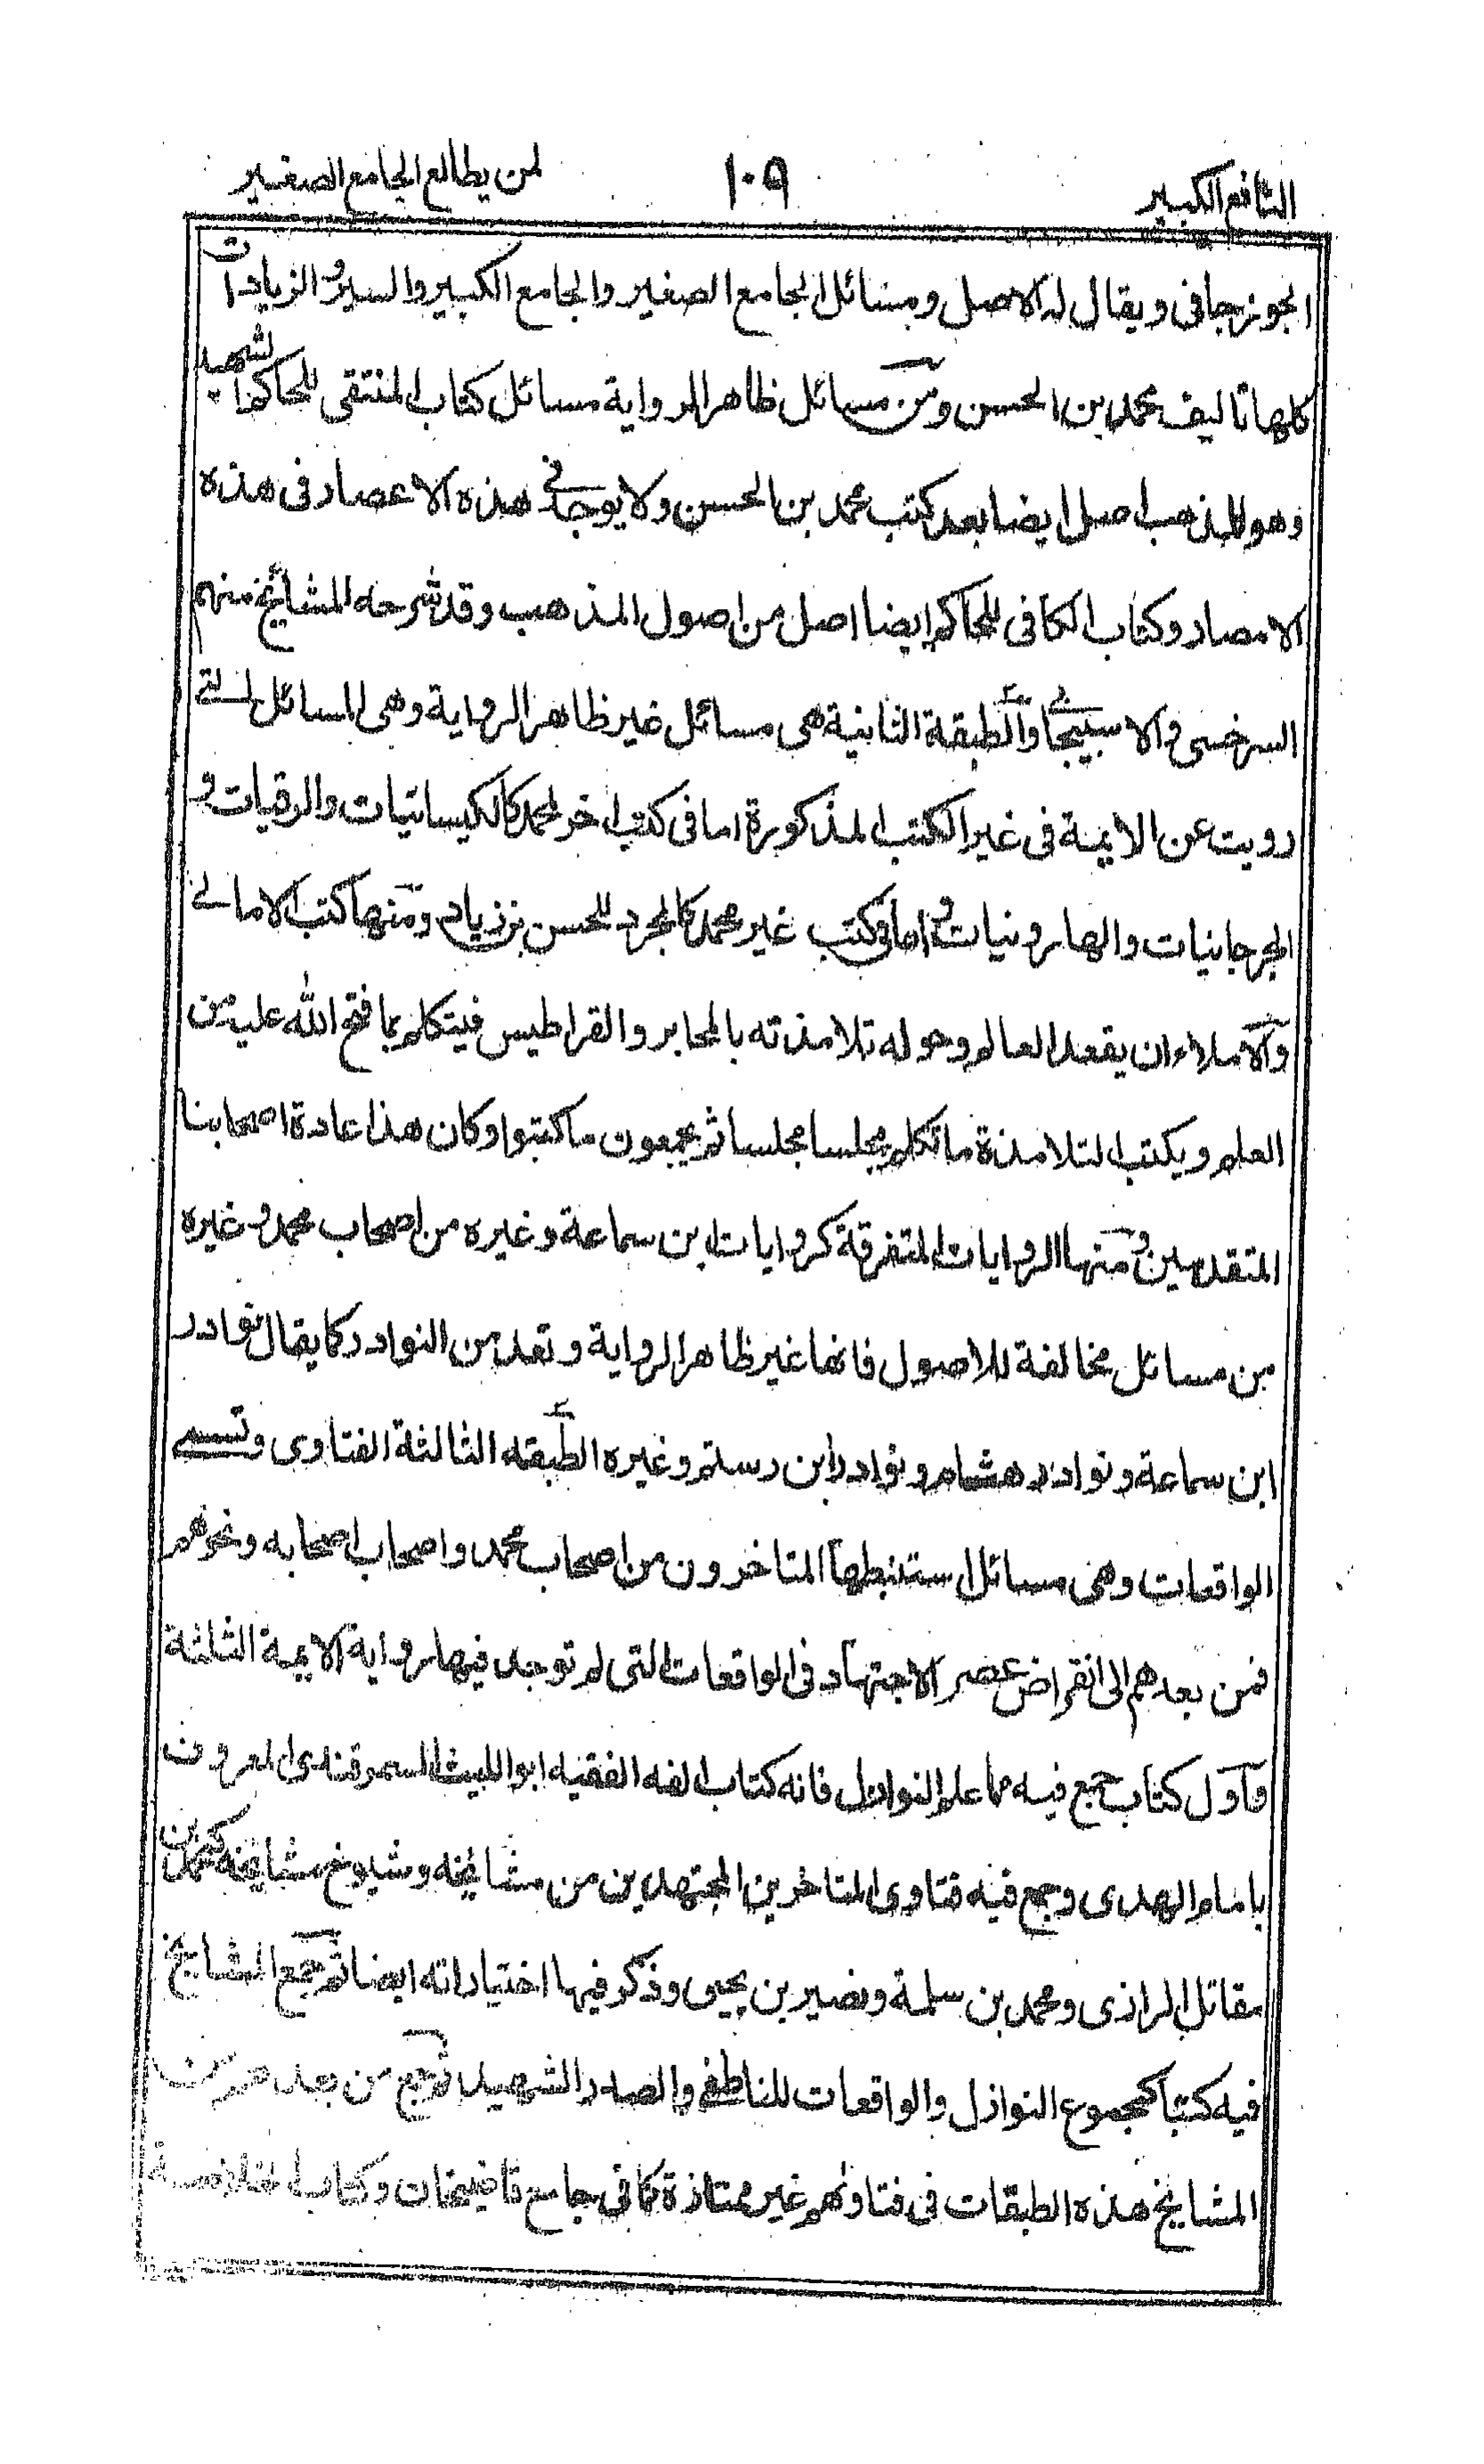 النافع الكبير ١٠٩ لمن يطالع الجامع الصغير
الجوزجانى ويقال له الاصل ومسائل الجامع الصغير والجامع الكبير والسير والزيادات
كلها تاليف محمد بن الحسن ومن مسائل ظاهر الرواية مسائل كتاب المنتقى للحاكم الشهيد
وهو للمذهب اصل ايضا بعد كتب محمد بن الحسن ولا يوجد فى هذه الاعصار فى هذه
الامصار وكتاب الكافى للحاكم ايضا اصل من اصول المذهب وقد شرحه المشائخ منهم
السرخسى والاسبيجابى والطبقة الثانية هى مسائل غير ظاهر الرواية وهى المسائل التى
رويت عن الايمة فى غير الكتب المذكورة اما فى كتب اخر لمحمد كالكيسانيات والرقيات و
الجرجانيات والهارونيات و اما فى كتب غير محمد كالمجرد للحسن بن زياد ومنها كتب الامالى
والاملاء ان يقعد العالم وحوله تلامذته بالمحابر والقراطيس فيتكلم بما فتح الله عليه من
العلم ويكتب التلامذة ما تكلم مجلسا مجلسا ثم يجمعون ما كتبوا وكان هذا عادة اصحابنا
المتقدمين ومنها الروايات المتفرقة كروايات ابن سماعة وغيره من اصحاب محمد وغيره
من مسائل مخالفة للاصول فانها غير ظاهر الرواية وتعد من النوادر كما يقال نوادر
ابن سماعة ونوادر هشام ونوادر ابن رستم وغيره الطبقه الثالثة الفتاوى وتسمى
الواقعات وهى مسائل استنبطها المتاخرون من اصحاب محمد واصحاب اصحابه ونحوهم
فمن بعدهم الى انقراض عصر الاجتهاد فى الواقعات التى لم توجد فيها رواية الايمة الثلثة
واول كتاب جمع فيه مما علم النوازل فانه كتاب الفه الفقيه ابو الليث السمرقندى المعروف
بامام الهدى وجمع فيه فتاوى المتاخرين المجتهدين من مشائخه وشيوخ مشايخه كمحمد بن
مقاتل الرازى ومحمد بن سلمة ونصير بن يحيى وذكر فيها اختياراته ايضا ثم جمع المشايخ
فيه كتبا كمجموع النوازل والواقعات للناطفى والصدر الشهيد ثم جمع من بعدهم من
المشائخ هذه الطبقات فى فتاوٰهم غير ممتازة كما فى جامع قاضيخان وكتاب الخلاصة